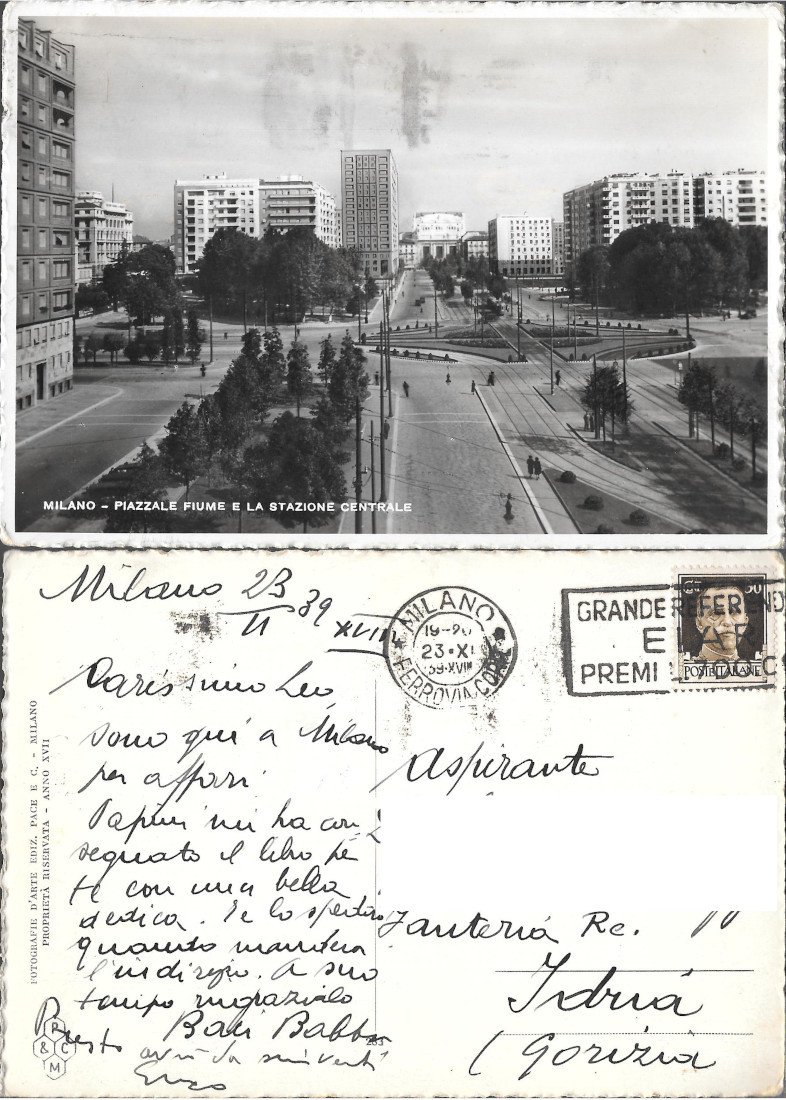 MILANO - PIAZZALE FIUME E LA STAZIONE CENTRALE
Milano 23/11 39 XVIII
MILANO
19-20
23·XI
39·XVIII
FERROVIA CORR.
GRANDE REFEREND
E A R
PREMI
POSTE ITALANE
50
FOTOGRAFIE D'ARTE EDIZ. PACE E C. - MILANO
PROPRIETÀ RISERVATA - ANNO XVII
Carissimo Leo
sono qui a Milano
per affari
Papini mi ha con
segnato il libro pe
te con una bella
dedica. Te lo spedirò
quanto manderai
l'indirizzo. A suo
tempo ringrazialo
Baci Babbo
Presto avrà da scriverti
Enzo
P & C M
283
Aspirante
Fanteria Re.
Idria
(Gorizia